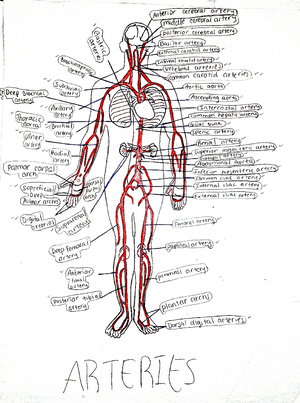 Anterior cerebral artery
middle cerebral artery
posterior cerebral artery
Basilar artery
External carotid artery
internal carotid artery
Vertebral arteries
common carotid arteries
Aortic aorta
Ascending aorta
Intercostal artery
Common hepatic artery
Splenic artery
Renal artery
Superior mesenteric artery
Abdominal aorta
Inferior mesenteric artery
Common iliac artery
Internal iliac artery
External iliac artery
Femoral artery
Popliteal artery
peroneal artery
plantar arch
Dorsal digital arteries
carotid
arteries
Brachiocephalic
artery
Subclavian
artery
Deep brachial
artery
Axillary
artery
thoracic
aorta
Brachial
artery
Ulnar
artery
Radial
artery
Palmar carpal
arch
Superficial
Deep
Palmar arches
Digital
arteries
Deep femoral
artery
Anterior
tibial
artery
Posterior tibial
artery
ARTERIES